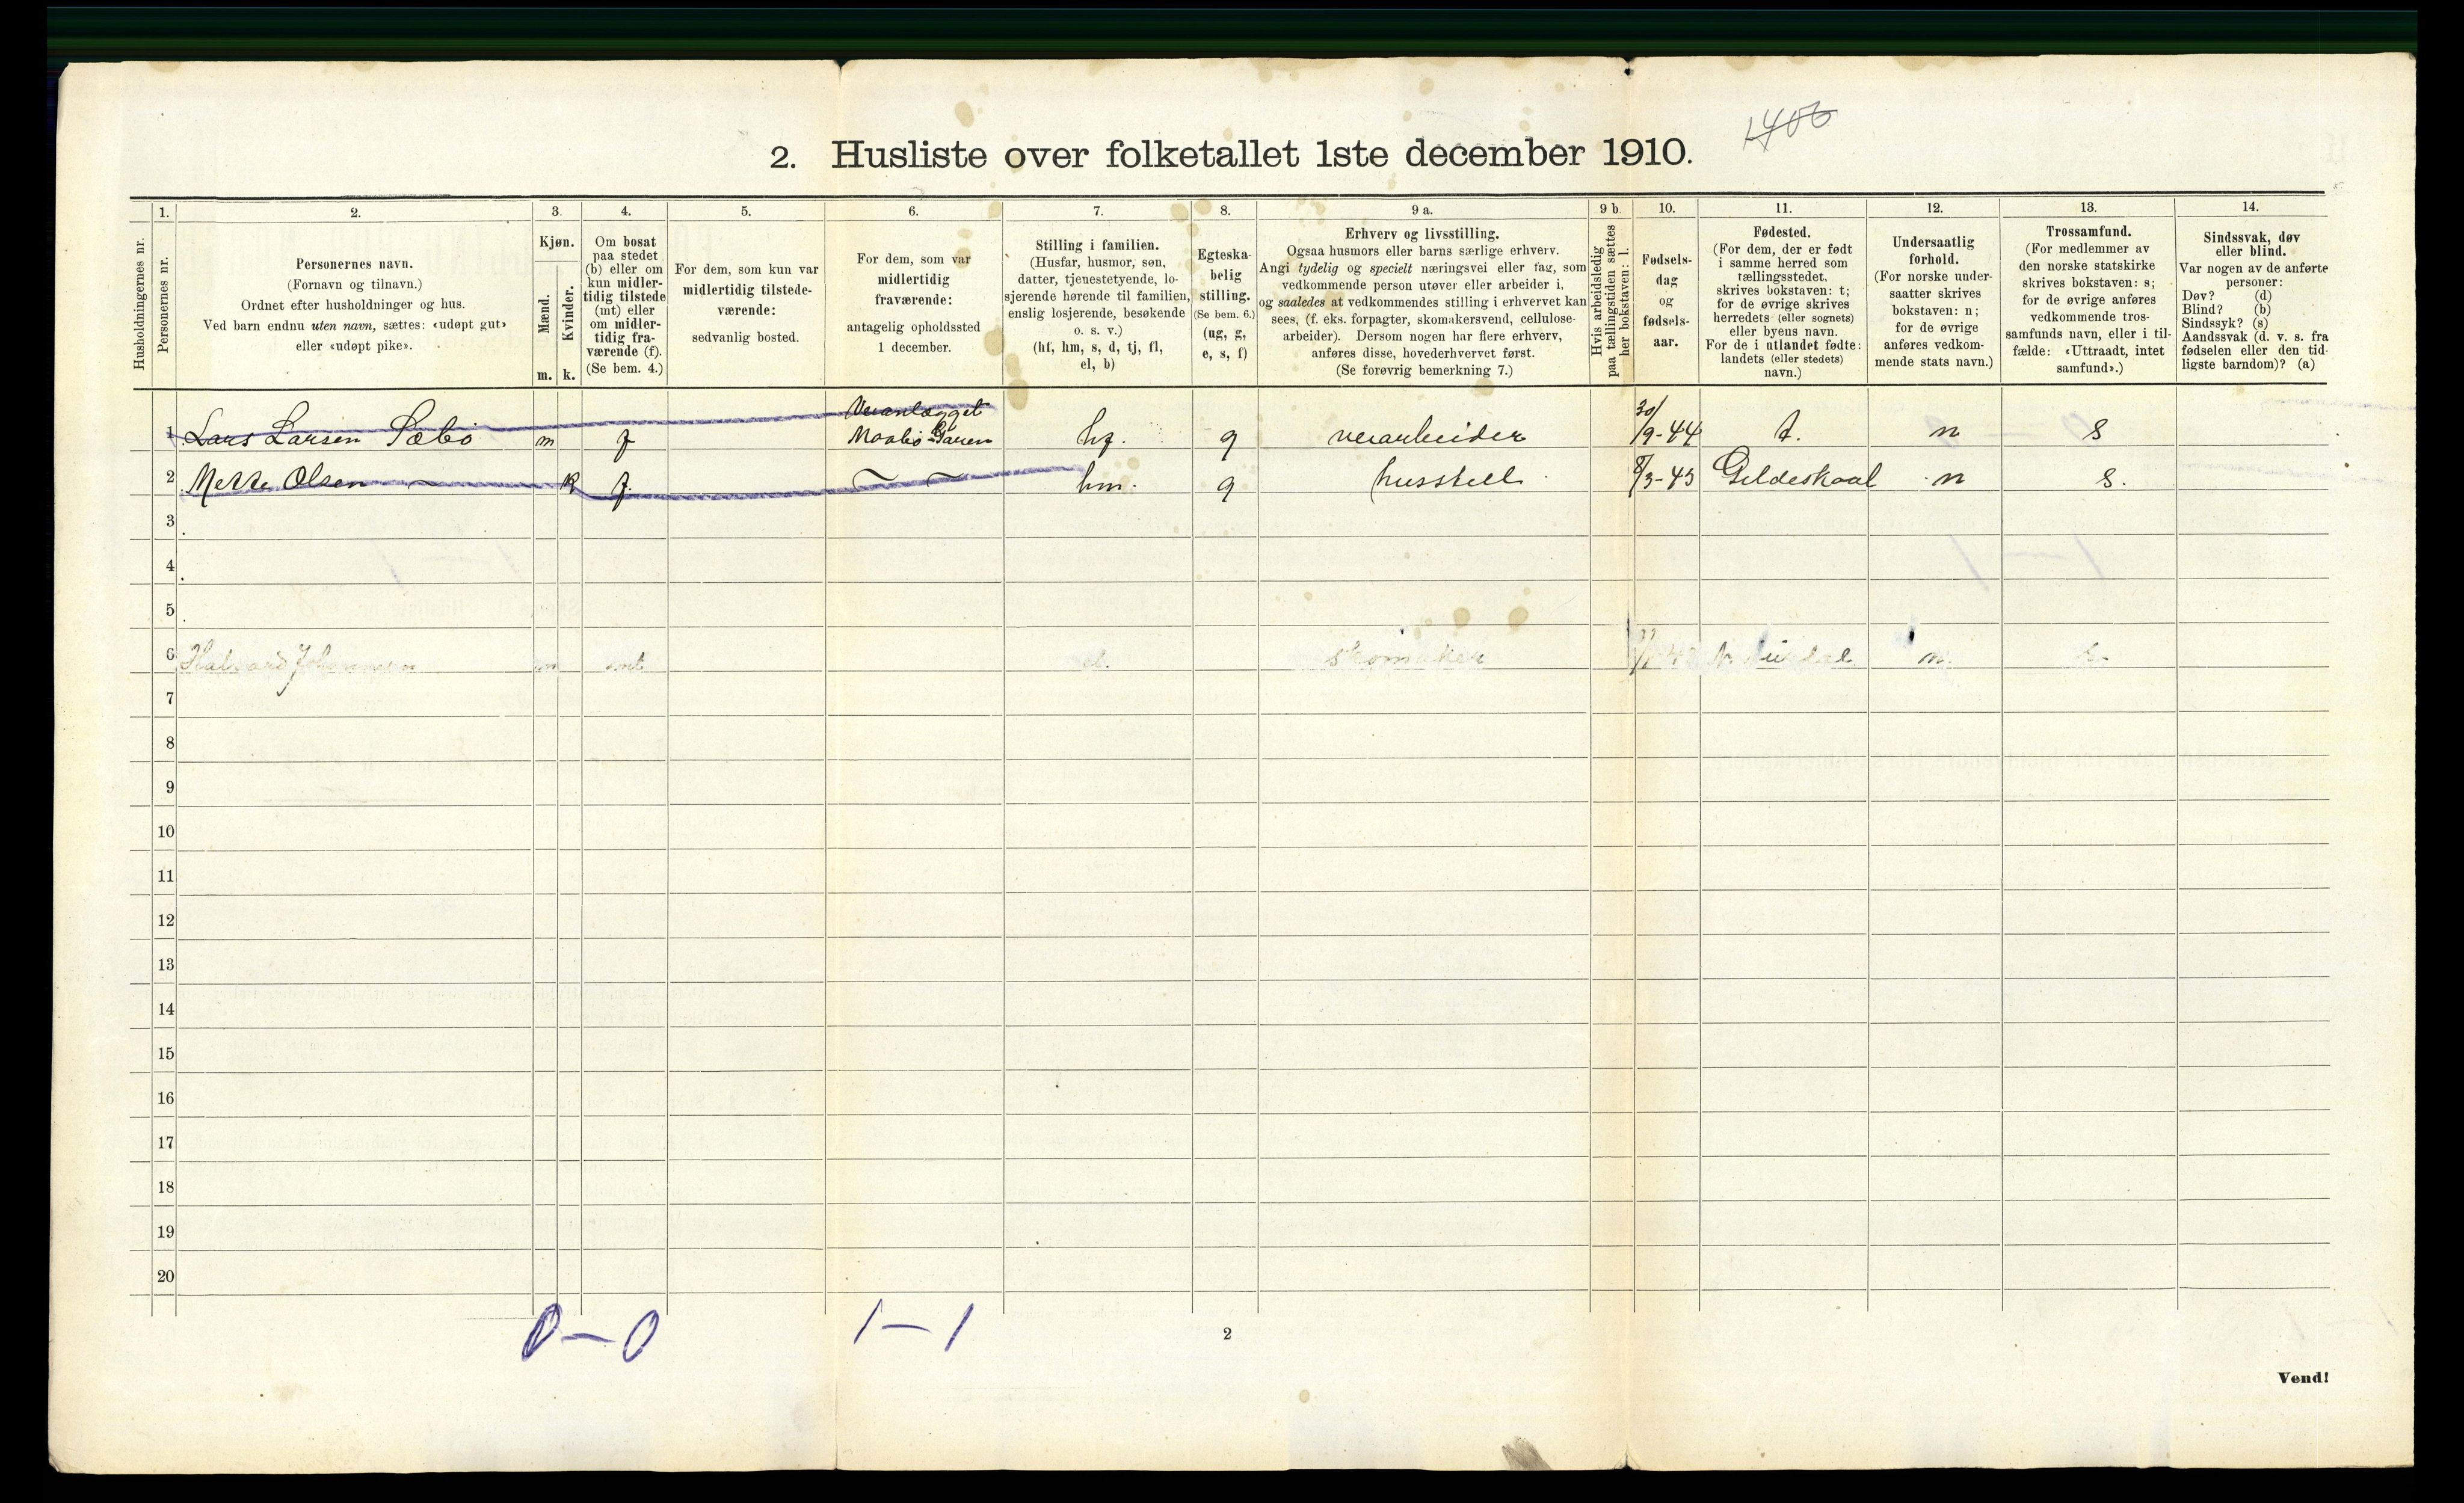 1406
2. Husliste over folketallet 1ste december 1910.
Husholdningernes nr.
1.
Personernes nr.
2.
Personernes navn.
(Fornavn og tilnavn.)
Ordnet efter husholdninger og hus.
Ved barn endnu uten navn, sættes: «udøpt gut»
eller «udøpt pike».
3.
Kjøn.
Mænd.
Kvinder.
m. k.
4.
Om bosat
paa stedet
(b) eller om
kun midler-
tidig tilstede
(mt) eller
om midler-
tidig fra-
værende (f).
(Se bem. 4.)
5.
For dem, som kun var
midlertidig tilstede-
værende:
sedvanlig bosted.
6.
For dem, som var
midlertidig
fraværende:
antagelig opholdssted
1 december.
7.
Stilling i familien.
(Husfar, husmor, søn,
datter, tjenestetyende, lo-
sjerende hørende til familien,
enslig losjerende, besøkende
o. s. v.)
(hf, hm, s, d, tj, fl,
el, b)
8.
Egteska-
belig
stilling.
(Se bem. 6.)
(ug, g,
e, s, f)
9 a.
Erhverv og livsstilling.
Ogsaa husmors eller barns særlige erhverv.
Angi tydelig og specielt næringsvei eller fag, som
vedkommende person utøver eller arbeider i,
og saaledes at vedkommendes stilling i erhvervet kan
sees, (f. eks. forpagter, skomakersvend, cellulose-
arbeider). Dersom nogen har flere erhverv,
anføres disse, hovederhvervet først.
(Se forøvrig bemerkning 7.)
9 b.
Hvis arbeidsledig
paa tællingstiden sættes
her bokstaven: l.
10.
Fødsels-
dag
og
fødsels-
aar.
11.
Fødested.
(For dem, der er født
i samme herred som
tællingsstedet,
skrives bokstaven: t;
for de øvrige skrives
herredets (eller sognets)
eller byens navn.
For de i utlandet fødte:
landets (eller stedets)
navn.)
12.
Undersaatlig
forhold.
(For norske under-
saatter skrives
bokstaven: n;
for de øvrige
anføres vedkom-
mende stats navn.)
13.
Trossamfund.
(For medlemmer av
den norske statskirke
skrives bokstaven: s;
for de øvrige anføres
vedkommende tros-
samfunds navn, eller i til-
fælde: «Uttraadt, intet
samfund».)
14.
Sindssvak, døv
eller blind.
Var nogen av de anførte
personer:
Døv? (d)
Blind? (b)
Sindssyk? (s)
Aandssvak (d. v. s. fra
fødselen eller den tid-
ligste barndom)? (a)
Veianlægget
1 Lars Larsen Sæbö m f Maabö hf. g veiarbeider 30/9-44 t. n s
2 Mette Olsen — k f. — — hm. g husstell 8/3-43 Gildeskaal n s.
3
4
5
6 Halvard Johannesen m mt el. skomaker n. s.
7
8
9
10
11
12
13
14
15
16
17
18
19
20
0 — 0 1 — 1
2
Vend!